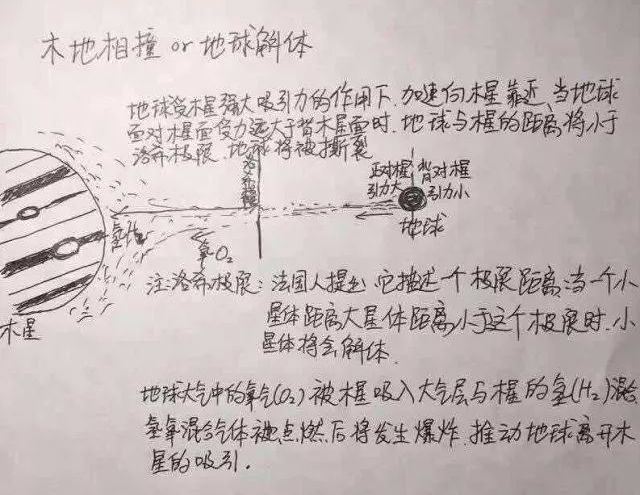 木地相撞 or 地球解体
地球受木星强大吸引力的作用下,加速向木星靠近,当地球
面对木星面受力远大于背木星面时,地球与木星的距离将小于
洛希极限,地球将被撕裂
洛希极限
正对木星 背对木星
引力大 引力小
地球
氢H₂
氧O₂
木星
注:洛希极限:法国人提出,它描述一个极限距离;当一个小
星体距离大星体距离小于这个极限时,小
星体将会解体.
地球大气中的氧气(O₂)被木星吸入大气层与木星的氢(H₂)混
氢氧混合气体被点燃后将发生爆炸,推动地球离开木
星的吸引.